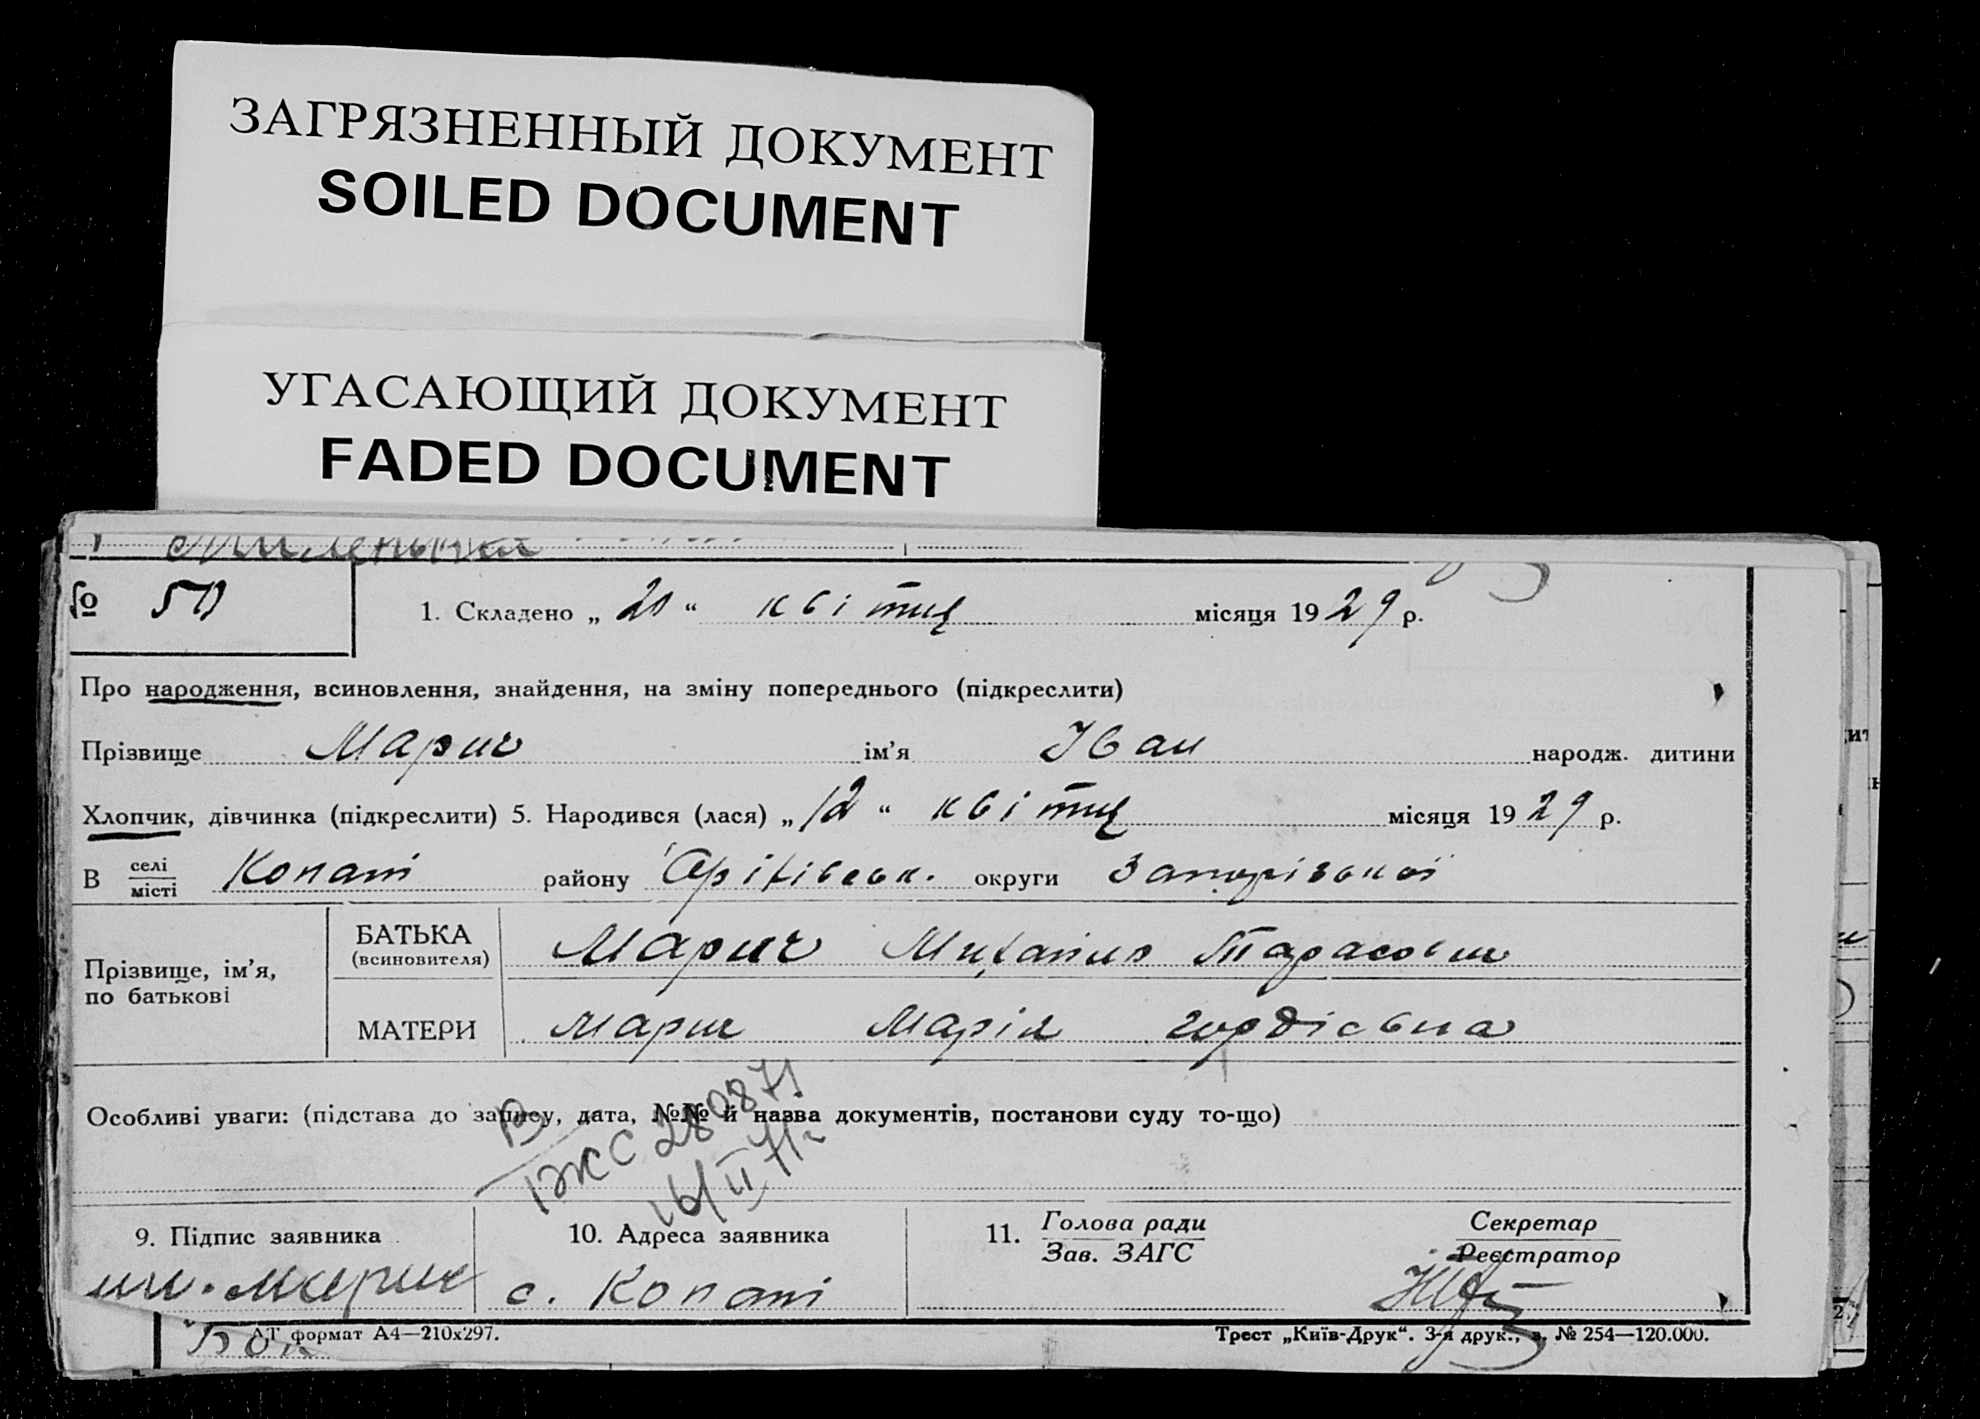 ЗАГРЯЗНЕННЫЙ ДОКУМЕНТ
SOILED DOCUMENT
УГАСАЮЩИЙ ДОКУМЕНТ
FADED DOCUMENT
№ 50
1. Складено „ 20 “ квітня місяця 1929 р.
Про народження, всиновлення, знайдення, на зміну попереднього (підкреслити)
Прізвище Марич ім’я Іван народж. дитини
Хлопчик, дівчинка (підкреслити) 5. Народився (лася) „ 12 “ квітня місяця 1929 р.
В селі / місті Копані району Оріхівськ. округи Запорізької
Прізвище, ім’я, по батькові
БАТЬКА (всиновителя) Марич Михайло Тарасович
МАТЕРИ Марич Марія Гордієвна
Особливі уваги: (підстава до запису, дата, №№ й назва документів, постанови суду то-що)
280871
16/II 71г
9. Підпис заявника
Марич
10. Адреса заявника
с. Копані
11. Голова ради / Зав. ЗАГС
Секретар / Реєстратор
АТ формат А4—210х297.
Трест „Київ-Друк“. 3-я друк., з. № 254—120.000.